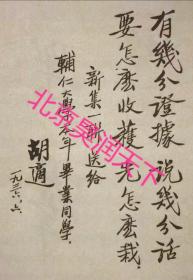 有幾分證據 說幾分話
要怎麽收穫先怎麽栽
新集一聯 送給
輔仁大學年畢業同學
胡適
一九三六、六
润天下